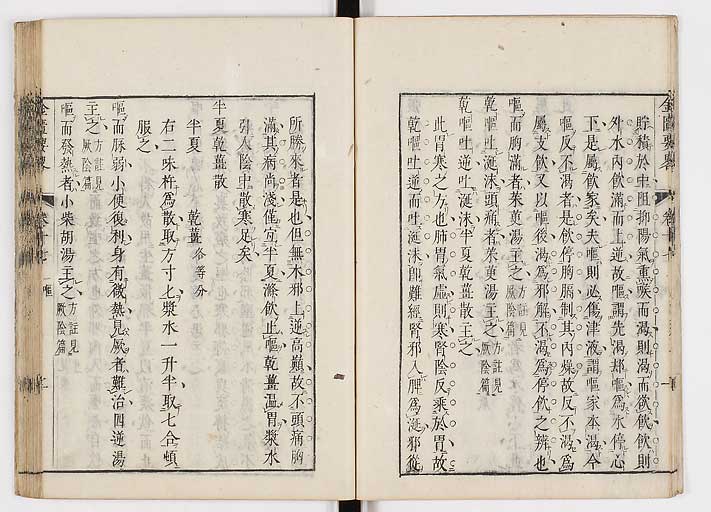 貯積於中阻抑陽氣熏喉而渴則渴而欲飲飲則
外水內飲滿而上逆故嘔謂先渴却嘔為水停心
下是屬飲家矣夫嘔則必傷津液謂嘔家本渴今
嘔反不渴者是飲停胸膈制其內燥故反不渴為
屬支飲又以嘔後渴為邪解不渴為停飲之辨也
嘔而胸滿者茱萸湯主之方註見厥陰篇
乾嘔吐涎沫頭痛者茱萸湯主之方註見厥陰篇
乾嘔吐逆吐涎沫半夏乾薑散主之
此胃寒之方也肺胃氣虛則寒腎陰反乘於胃故
乾嘔吐逆而吐涎沫卽難經腎邪入脾為涎邪從
所勝來者是也但無木邪上逆高巔故不頭痛胸
滿其病尚淺僅宜半夏滌飲止嘔乾薑溫胃漿水
引人陰中散寒足矣
半夏乾薑散
半夏 乾薑各等分
右二味杵為散取方寸匕漿水一升半取七合頓
服之
嘔而脉弱小便復利身有微熱見厥者難治四逆湯
主之方註見厥陰篇
嘔而發熱者小柴胡湯主之方註見厥陰篇